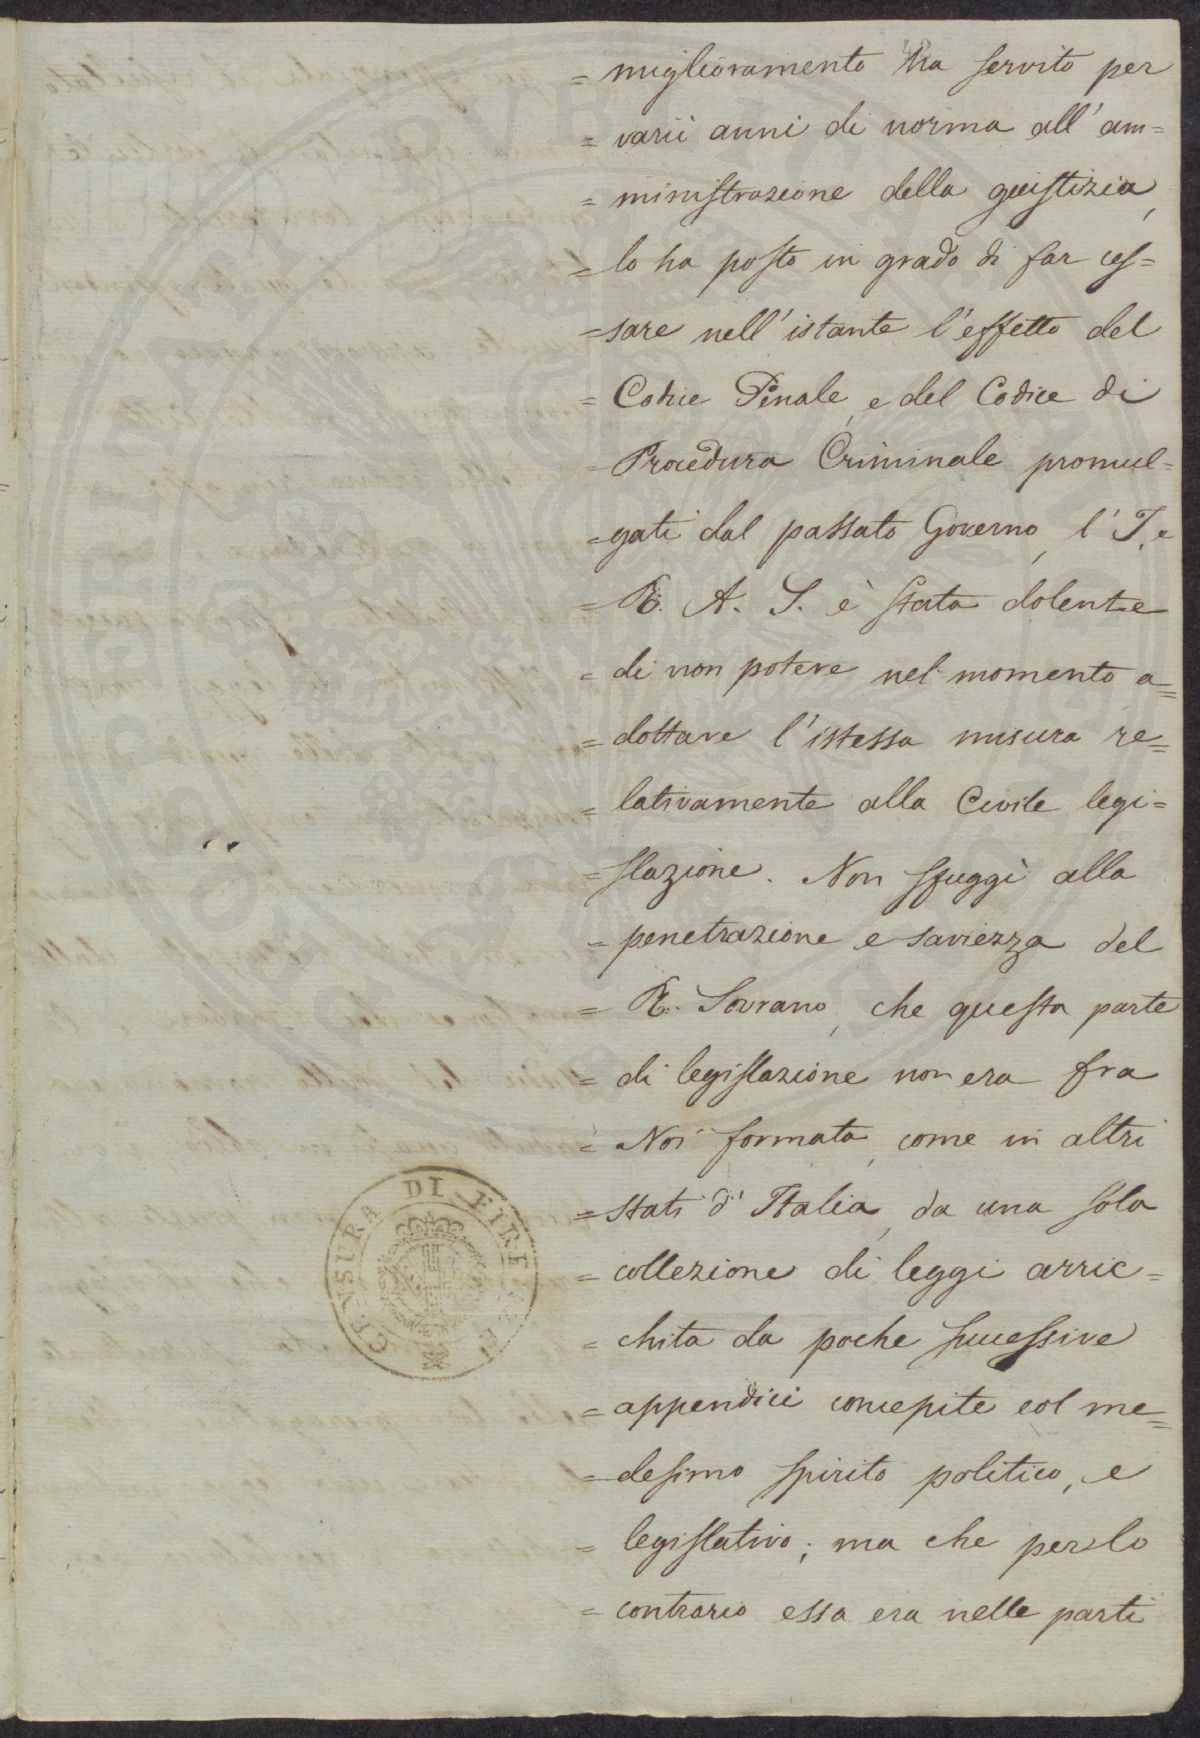 = miglioramento ha servito per
= varii anni di norma all'am=
= ministrazione della giustizia,
= lo ha posto in grado di far ces=
= sare nell'istante l'effetto del
= Codice Penale, e del Codice di
= Procedura Criminale promul=
= gati dal passato Governo, l'I. e
= R. A. S. è stata dolente
= di non potere nel momento a=
= dottare l'istessa misura re=
= lativamente alla Civile legi=
= slazione. Non sfuggì alla
= penetrazione e saviezza del
= R. Sovrano, che questa parte
= di legislazione non era fra
= Noi formata, come in altri
= stati d'Italia, da una sola
= collezione di leggi arric=
= chita da poche successive
= appendici concepite col me=
= desimo spirito politico, e
= legislativo; ma che per lo
= contrario essa era nelle parti
CENSURA DI FIRENZE